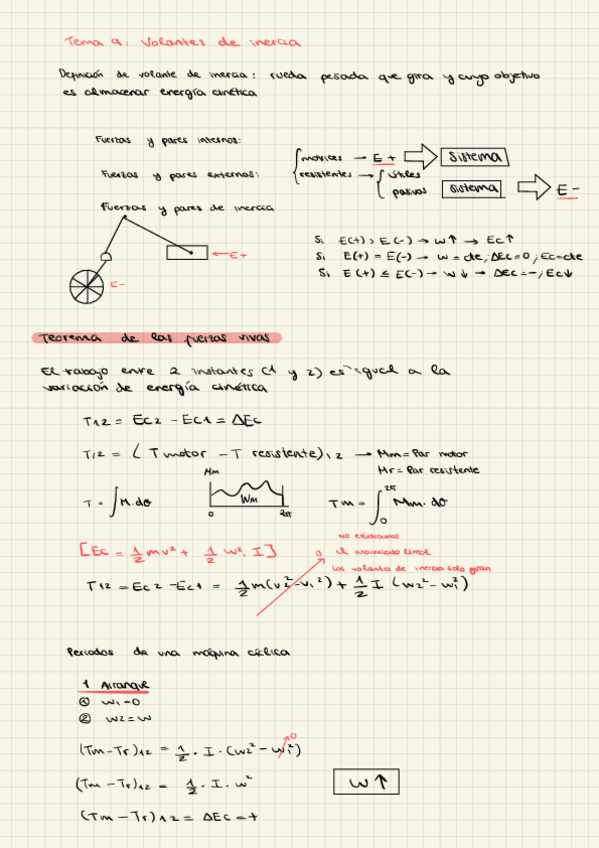 Tema 9: Volantes de inercia
Definición de volante de inercia: rueda pesada que gira y cuyo objetivo
es almacenar energía cinética
Fuerzas y pares internos:
Fuerzas y pares externos:
motrices → E+ Sistema
resistentes → útiles
pasivos sistema E-
Fuerzas y pares de inercia
←E+
E-
Si E(+) > E(-) → w↑ → Ec↑
Si E(+) = E(-) → w = cte, ΔEc=0, Ec=cte
Si E(+) ≤ E(-) → w ↓ → ΔEc=-, Ec↓
Teorema de las fuerzas vivas
El trabajo entre 2 instantes (1 y 2) es igual a la
variación de energía cinética
T12 = Ec2 - Ec1 = ΔEc
T12 = (T motor - T resistente)12 → Mm = Par motor
Mr = Par resistente
T = ∫M.dσ
Mm
Wm
0 2π
Tm = ∫₀^2π Mm.dσ
[Ec = 1/2 mv² + 1/2 w².I]
NO estudiamos
0 el movimiento lineal
Los volante de inercia solo giran
T12 = Ec2 - Ec1 = 1/2 m(v2²-v1²) + 1/2 I (w2² - w1²)
Periodos de una máquina cíclica
1 Arranque
① w1=0
② w2=w
(Tm-Tr)12 = 1/2 . I . (w2² - w1²) 0
(Tm-Tr)12 = 1/2 . I . w²
w↑
(Tm-Tr)12 = ΔEc = +